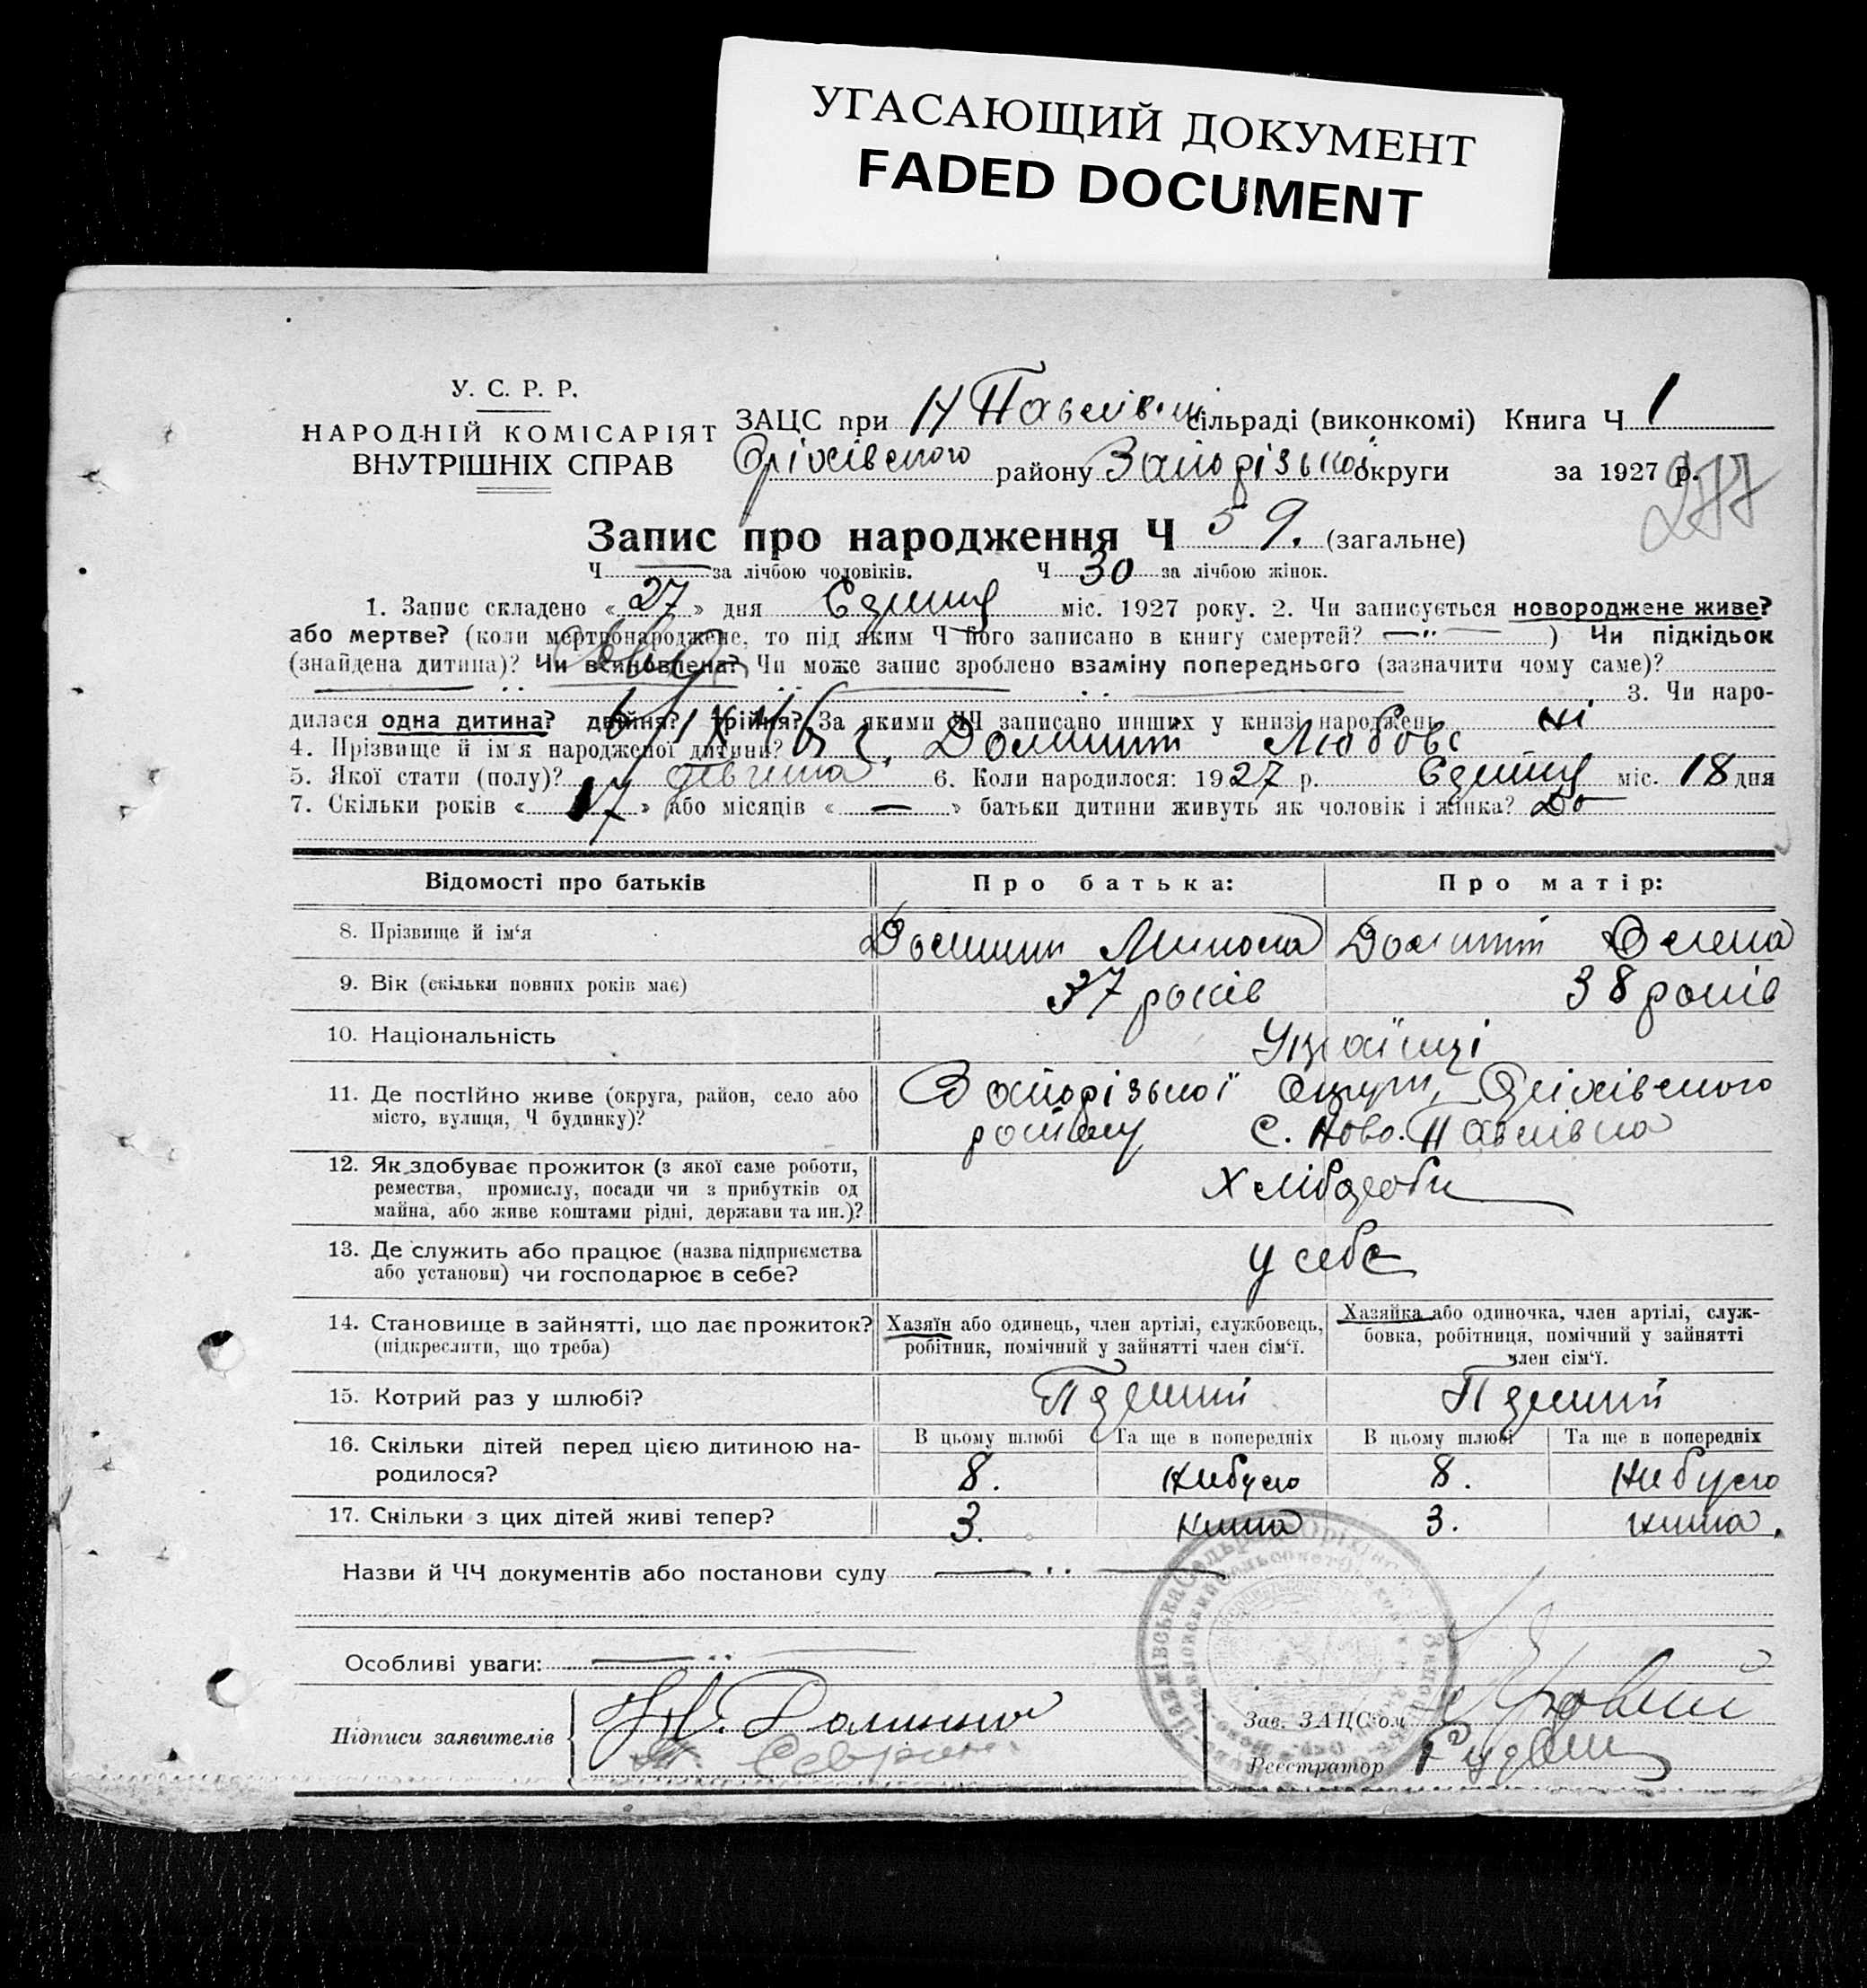 УГАСАЮЩИЙ ДОКУМЕНТ
FADED DOCUMENT
У. С. Р. Р.
НАРОДНІЙ КОМІСАРІЯТ
ВНУТРІШНІХ СПРАВ
ЗАЦС при Н Павлівськ сільраді (виконкомі) Книга Ч 1
Оріхівського району Запорізької округи за 1927 р.
277
Запис про народження Ч 59. (загальне)
Ч — за лічбою чоловіків. Ч 30 за лічбою жінок.
1. Запис складено « 27 » дня міс. 1927 року. 2. Чи записується новороджене живе?
або мертве? (коли мертвонароджене, то під яким Ч його записано в книгу смертей? —„— ) Чи підкідьок
(знайдена дитина)? Чи всиновлена? Чи може запис зроблено взаміну попереднього (зазначити чому саме)?
3. Чи наро-
дилася одна дитина? двійня? трійня? За якими ЧЧ записано инших у книзі народжень ні
4. Прізвище й ім'я народженої дитини? Любовь
5. Якої стати (полу)? дівчина 6. Коли народилося: 1927 р. міс. 18 дня
7. Скільки років « 17 » або місяців « — » батьки дитини живуть як чоловік і жінка? До
Відомості про батьків Про батька: Про матір:
8. Прізвище й ім'я Олена
9. Вік (скільки повних років має) 37 років 38 років
10. Національність Українці
11. Де постійно живе (округа, район, село або Запорізької округи, Оріхівського
місто, вулиця, Ч будинку)? району С. Ново-Павлівка
12. Як здобуває прожиток (з якої саме роботи, Хлібороби
ремества, промислу, посади чи з прибутків од
майна, або живе коштами рідні, держави та ин.)?
13. Де служить або працює (назва підприємства у себе
або установи) чи господарює в себе?
14. Становище в зайнятті, що дає прожиток? Хазяїн або одинець, член артілі, службовець, Хазяйка або одиночка, член артілі, служ-
(підкреслити, що треба) робітник, помічний у зайнятті член сім'ї. бовка, робітниця, помічний у зайнятті
член сім'ї.
15. Котрий раз у шлюбі? Перший Перший
16. Скільки дітей перед цією дитиною на- В цьому шлюбі Та ще в попередніх В цьому шлюбі Та ще в попередніх
родилося? 8. небуло 8. небуло
17. Скільки з цих дітей живі тепер? 3. нима 3. нима.
Назви й ЧЧ документів або постанови суду
Особливі уваги:
Підписи заявителів
Зав. ЗАЦС'ом
Реєстратор